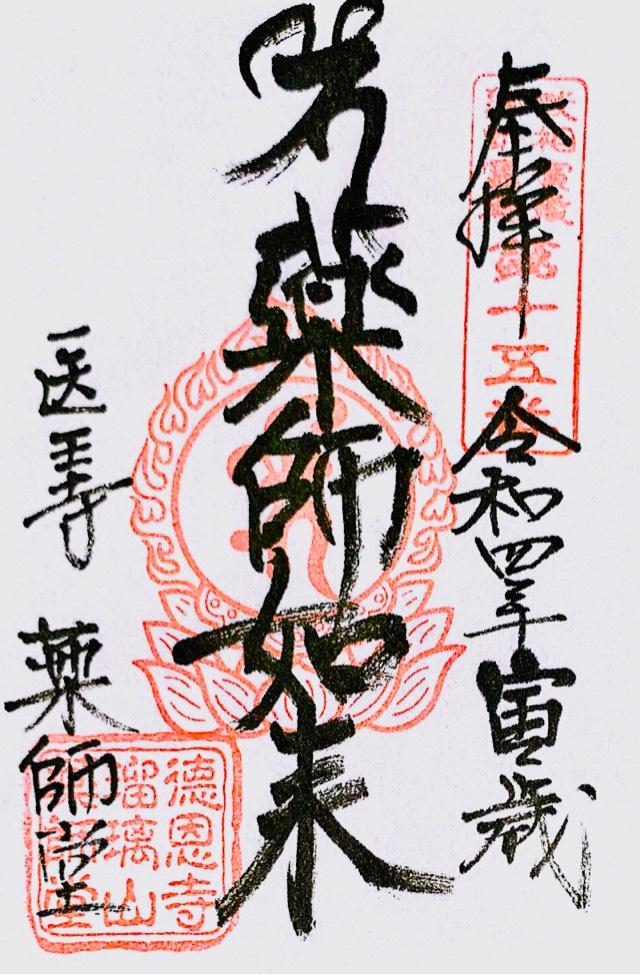 奉拝 令和四年 寅歳
十五
薬師如来
医王寺 薬師堂
徳恩寺
瑠璃山
師堂